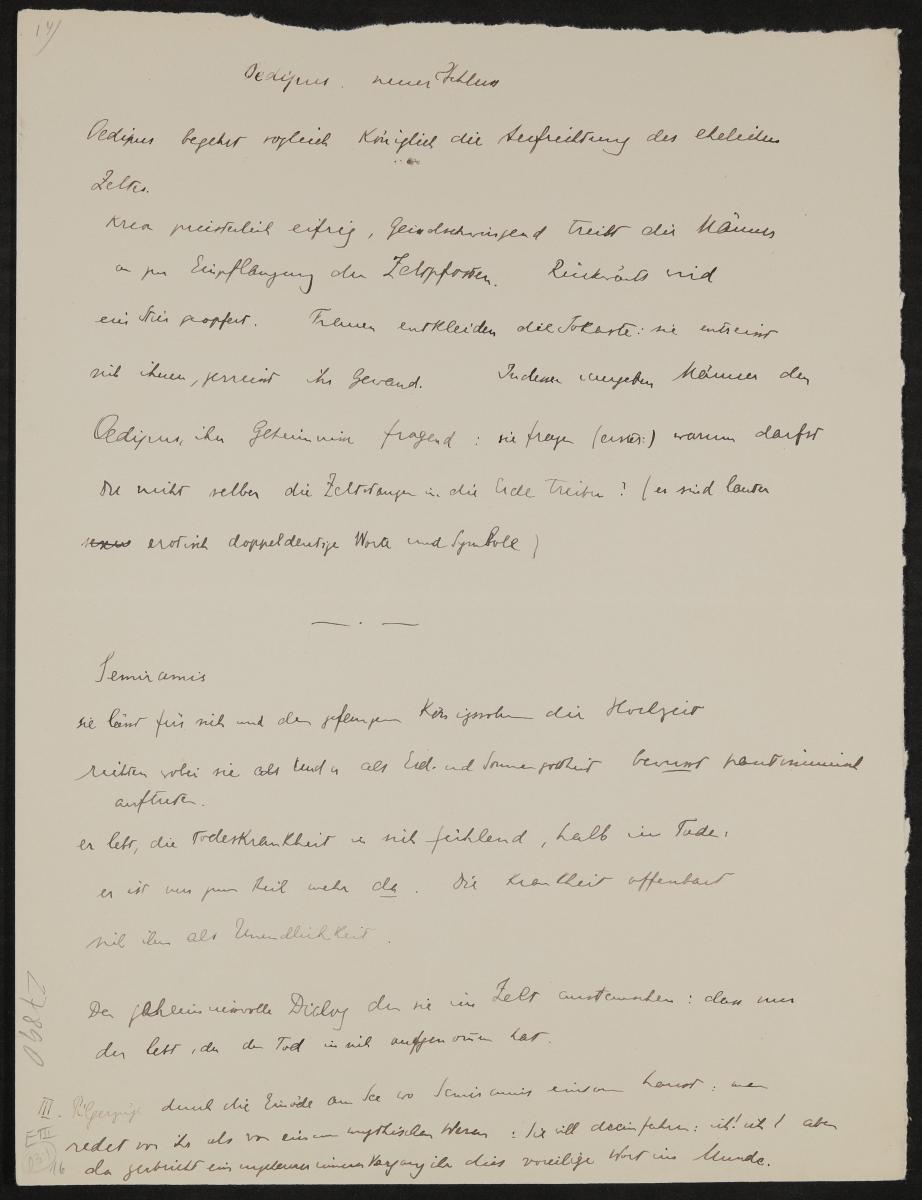 14)
Oedipus. neuer Schluss
Oedipus begehrt sogleich Königlich die Aufrichtung des ehelichen
Zeltes.
Kreon priesterlich eifrig, Geisselschwingend treibt die Männer
an zur Einpflanzung der Zeltpfosten. Rückwärts wird
ein Stier geopfert. Frauen entkleiden die Jokaste: sie entreisst
sich ihnen, zerreisst ihr Gewand. Indessen umgeben Männer den
Oedipus, ihn Geheimnisse fragend: sie fragen (erster:) warum darfst
Du nicht selber die Zeltstangen in die Erde treiben? (es sind lauter
erotisch doppeldeutige Worte und Symbole)
Semiramis
sie lässt für sich und den gefangenen Königssohn die Hochzeit
richten wobei sie als und er als Erd- und Sonnengottheit bewusst pantomimisch
auftreten.
er lebt, die Todeskrankheit in sich fühlend, halb im Tode:
er ist nur zum Teil mehr da. Die Krankheit offenbart
sich ihm als Unendlichkeit.
Der geheimnisvolle Dialog den sie im Zelt austauschen: dass nur
der lebt, der den Tod in sich aufgenommen hat.
III. Pilgerzüge durch die Einöde am See wo Semiramis einsam haust: man
redet von ihr als von einem mythischen Wesen: Sie will dreinfahren: ich! ich! aber
da zerbricht ein ungeheurer innerer Vorgang ihr dies voreilige Wort im Munde.
E III
16